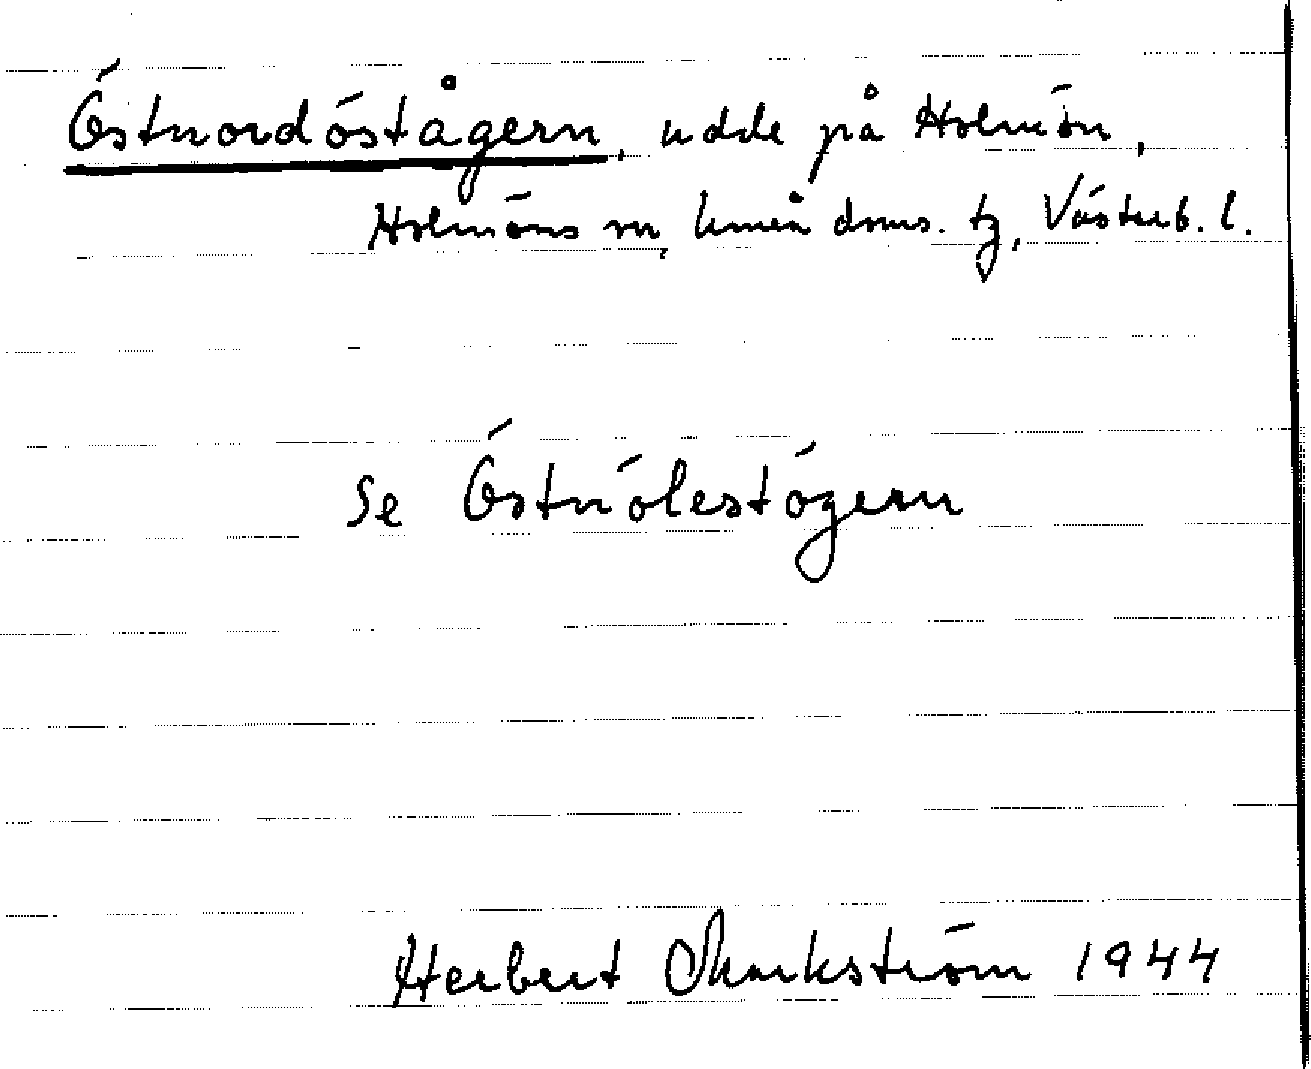 Östnordöstågern, udde på Holmön,
Holmöns sn, Umeå doms. tg, Västerb. l.
Se Östnölestögern
Herbert Markström 1944